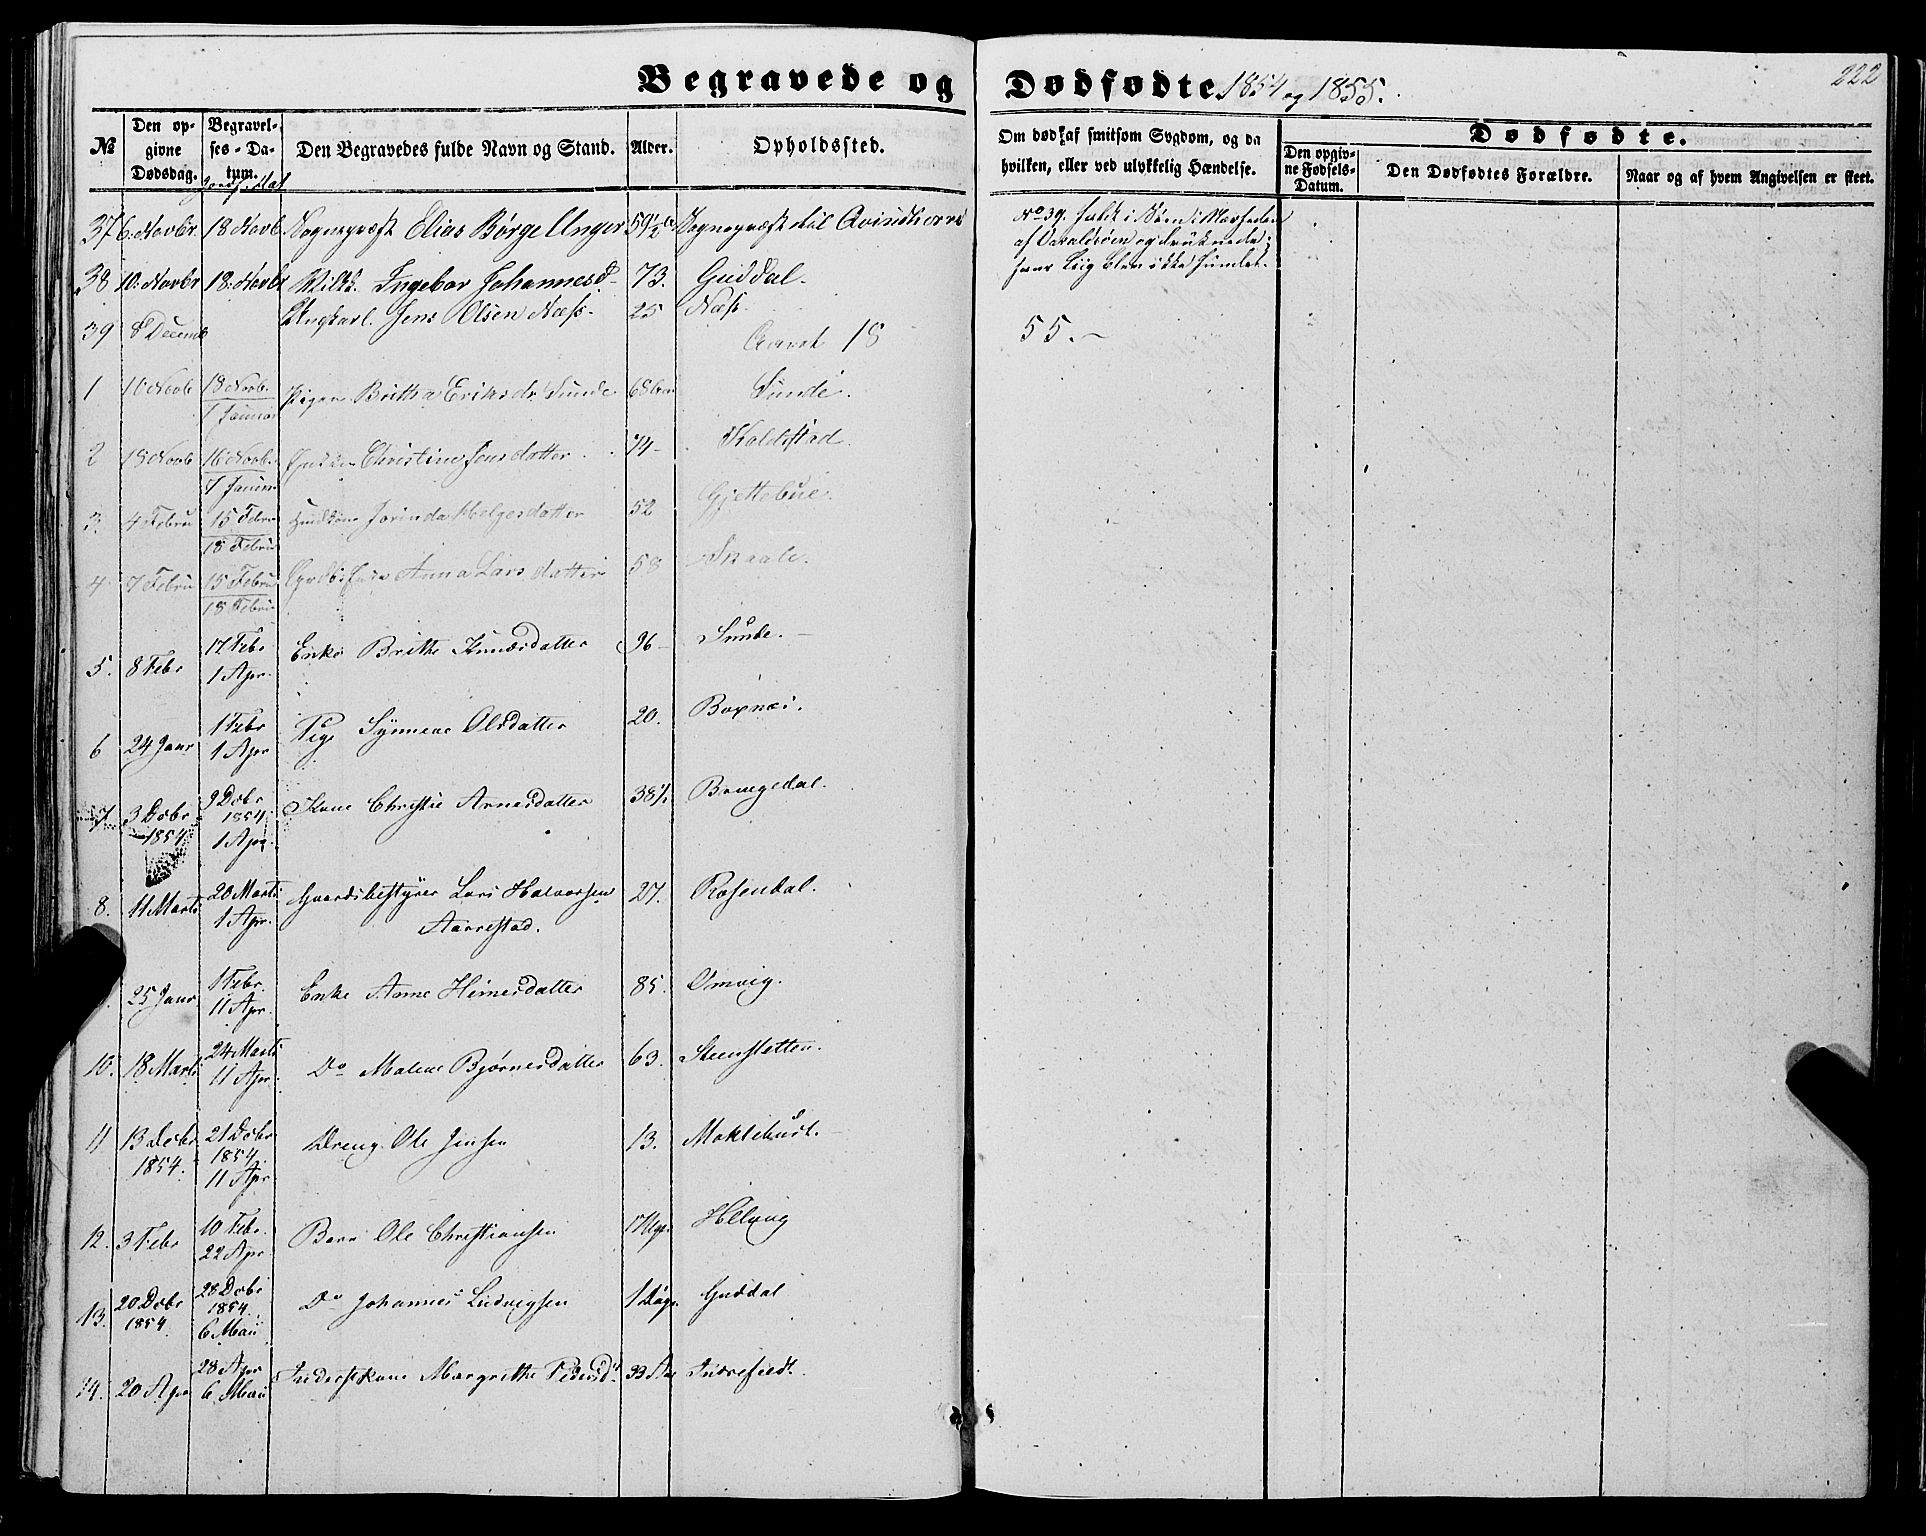 Begravede og Dødfødte 1854 og 1855.
222
№
Den opgivne Dødsdag.
Begravelses-Datum.
Den Begravedes fulde Navn og Stand.
Alder.
Opholdssted.
Om død af smitsom Sygdom, og da hvilken, eller ved ulykkelig Hændelse.
Dødfødte.
Den opgivne Fødsels-Datum.
Den Dødfødtes Forældre.
Naar og af hvem Angivelsen er skeet.
37 6. Novbr. 18 Novb. Sognepræst Elias Børge Unger 59½ Sognepræst til Qvindherred
38 10. Novbr 18. Novbr Ingebor Johannesd 73. Guddal.
39 8 Decemb Ungkarl. Jens Olsen Næss. 25 Næss.
No 39. faldt i Søen i
og druknede;
hans Liig blev ikke fundet.
Aaret 18 55.
1 16 Novb 18 Novb. 7 Januar Pigen Britha Eriksdr Sunde 68 Sunde.
2 15 Novb 16 Novb. 7 Januar Christine Jensdatter 74 Koldstad.
3. 4 Febru 15 Febr 18 Febru Jorinda Helgesdatter 52 Gjettebüe.
4. 7 Febru 15 Febru 18 Febru Anna Larsdatter 58 Skaale.
5. 8 Febr 17 Febr 1 Apr. Enke Brithe Knudsdatter 96 Sunde.
6 24 Janr 1 Febr 1 Apr Pige Synneve Olsdatter 20. Bognæs.
7. 3 Decbr 1854 9 Decbr 1854 1 Apr. Kone Christie Arnesdatter 38½ Bringedal.
8. 11 Marts 20 Marts 1 Apr. Gaardsbestyrer Lars Halvorsen 27. Rosendal.
Aarrestad.
25 Janr 1 Febr. 11 Apr. Enke Anne Heinesdatter 85. Omvig.
10. 18 Marts 24 Marts 11 Apr. Do Malene Bjørnesdatter 63. Steensletten.
11 13 Decbr. 1854. 21 Decbr. 1854. 11 Apr. Dreng Ole Jensen 13. Moklebust.
12. 3 Febr 10 Febr. 22 Apr. Barn Ole Christiansen 17 Uger Helvig
13. 20 Decbr 1854. 28 Decbr 1854. 6 Maii Do Johannes Ludvigsen 1 Dag. Guddal
14. 20 Apr 28 Apr 6 Maii Inderstkone Margrethe Pedersd. 33 Aar Indrefjeldt.